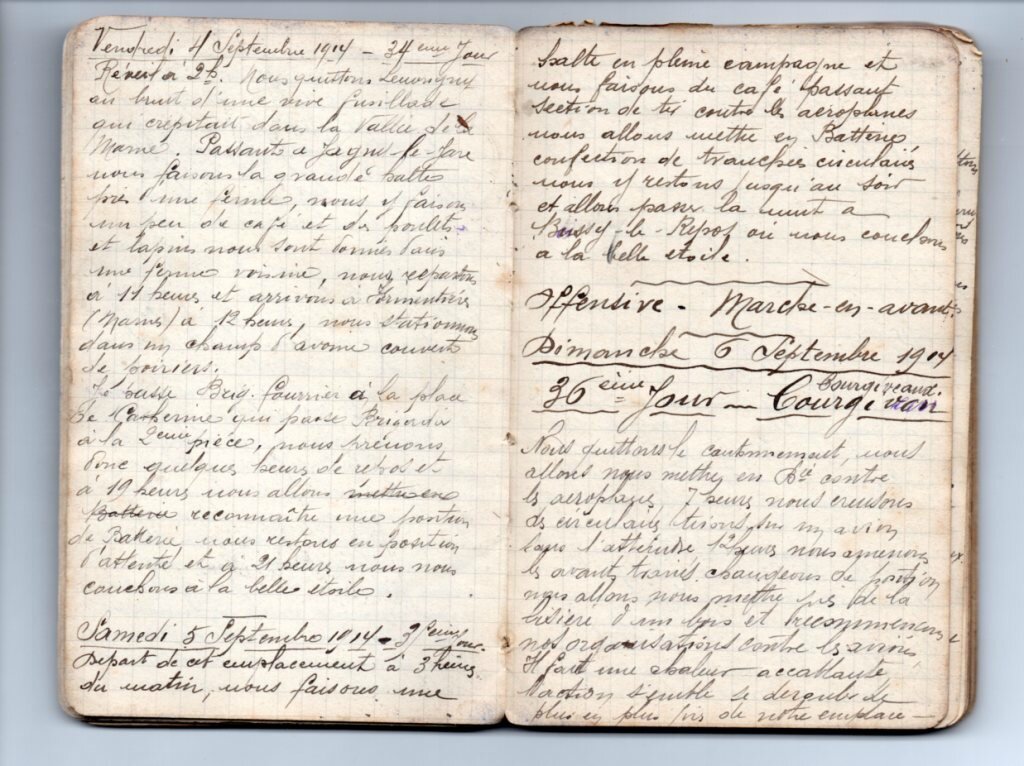 Vendredi 4 Septembre 1914 - 34ème Jour
Réveil à 2h. Nous quittons Leuvrigny
au bruit d'une vive fusillade
qui crépitait dans la Vallée de la
Marne. Passant à Igny-le-Jare
nous faisons la grande halte
près une ferme, nous y faisons
un peu de café et des poulets
et lapins nous sont donnés dans
une ferme voisine, nous repartons
à 11 heures et arrivons à
(Marne) à 12 heures, nous stationnons
dans un champ d'avoine couvert
de poiriers.
Je passe Brig. fourrier à la place
de qui passe Brigadier
à la 2ème pièce, nous prenons
donc quelques heures de repos et
à 19 heures nous allons mettre en
Batterie reconnaître une position
de Batterie nous restons en position
d'attente et à 21 heures nous nous
couchons à la belle étoile.
Samedi 5 Septembre 1914 - 35ème Jour.
Départ de cet emplacement à 3 heures
du matin, nous faisons une
halte en pleine campagne et
nous faisons du café passant
section de tir contre les aeroplanes
nous allons mettre en Batterie
confection de tranchées circulaires
nous y restons jusqu'au soir
et allons passer la nuit à
Bussy-le-Repos où nous couchons
à la belle étoile.
Offensive - Marche-en-avant.
Dimanche 6 Septembre 1914
Courgiveaux.
36ème Jour - Courgivau
Nous quittons le cantonnement, nous
allons nous mettre en Bie contre
les aeroplanes, 7 heures nous creusons
des circulaires tirons sur un avion
sans l'atteindre 12 heures nous amenons
les avant trains changeons de position
nous allons nous mettre près de la
lisière d'un bois et recommençons
nos organisations contre les avions
Il fait une chaleur accablante,
l'action semble se dérouler de
plus en plus près de notre emplace-